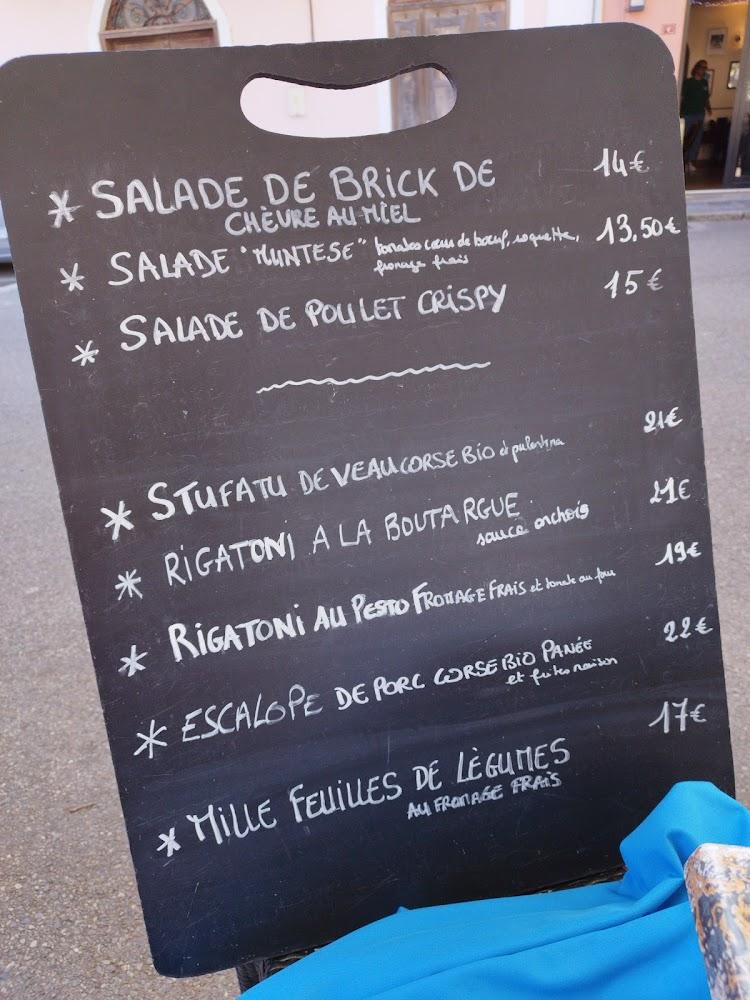 * SALADE DE BRICK DE 14€
CHÈVRE AU MIEL
* SALADE "MUNTESE" tomates cœur de bœuf, roquette, 13,50€
fromage frais
* SALADE DE POULET CRISPY 15€
* STUFATU DE VEAU CORSE BIO et pulentina 21€
* RIGATONI A LA BOUTARGUE 21€
sauce anchois
* RIGATONI AU PESTO FROMAGE FRAIS et tomate au four 19€
* ESCALOPE DE PORC CORSE BIO PANÉE 22€
et frites maison
* MILLE FEUILLES DE LÈGUMES 17€
AU FROMAGE FRAIS